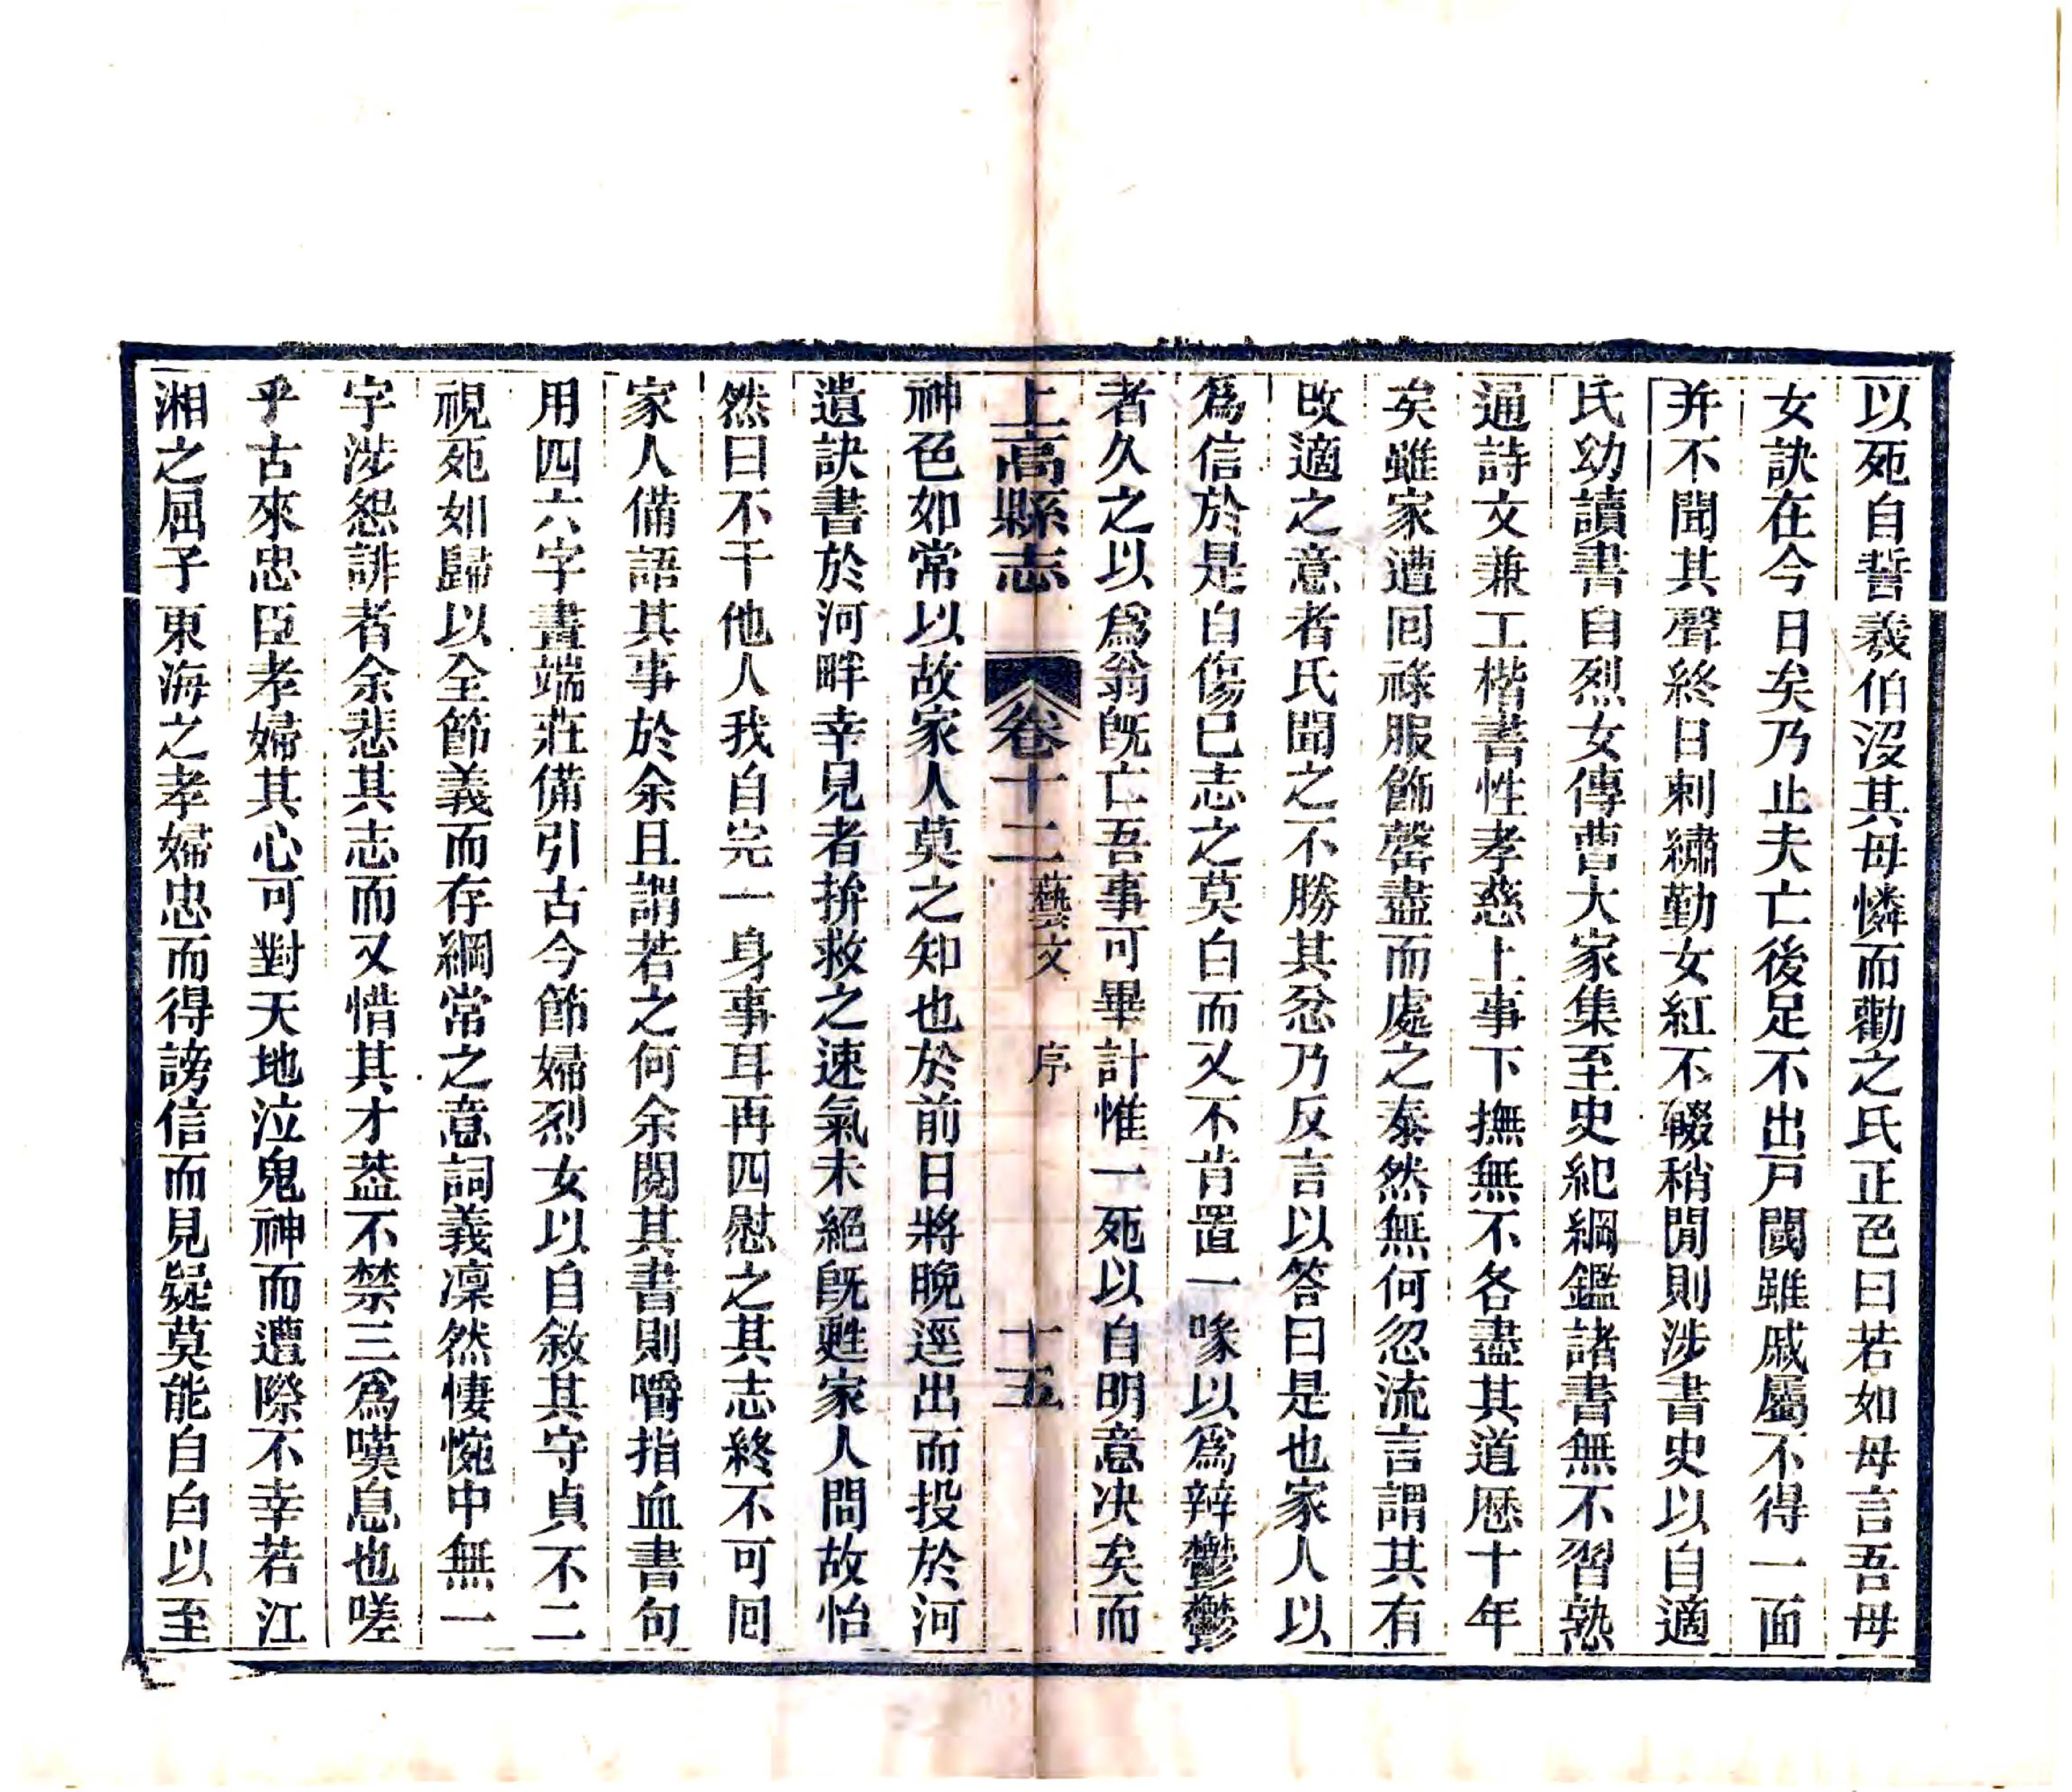 以死自誓義伯沒其母憐而勸之氏正色曰若如母言吾母
女訣在今日矣乃止夫亡後足不出戸閾雖戚屬不得一面
并不聞其聲終日刺繡勤女紅不輟稍閒則涉書史以自適
氏幼讀書自烈女傳曹大家集至史紀綱鑑諸書無不習熟
通詩文兼工楷書性孝慈上事下撫無不各盡其道歷十年
矣雖家遭回祿服飾罄盡而處之泰然無何忽流言謂其有
改適之意者氏聞之不勝其忿乃反言以答曰是也家人以
爲信於是自傷已志之莫白而又不肯置一喙以爲辯鬱鬱
者久之以爲翁旣亡吾事可畢計惟一死以自明意决矣而
上高縣志 卷十二 藝文 序 十五
神色如常以故家人莫之知也於前日將晚逕出而投於河
遺訣書於河畔幸見者拚救之速氣未絕旣甦家人問故怡
然曰不干他人我自完一身事耳再四慰之其志終不可囘
家人備語其事於余且謂若之何余閱其書則嚼指血書句
用四六字畫端莊備引古今節婦烈女以自敘其守貞不二
視死如歸以全節義而存綱常之意詞義凜然悽惋中無一
字涉怨誹者余悲其志而又惜其才葢不禁三爲嘆息也嗟
乎古來忠臣孝婦其心可對天地泣鬼神而遭際不幸若江
湘之屈子東海之孝婦忠而得謗信而見疑莫能自白以至